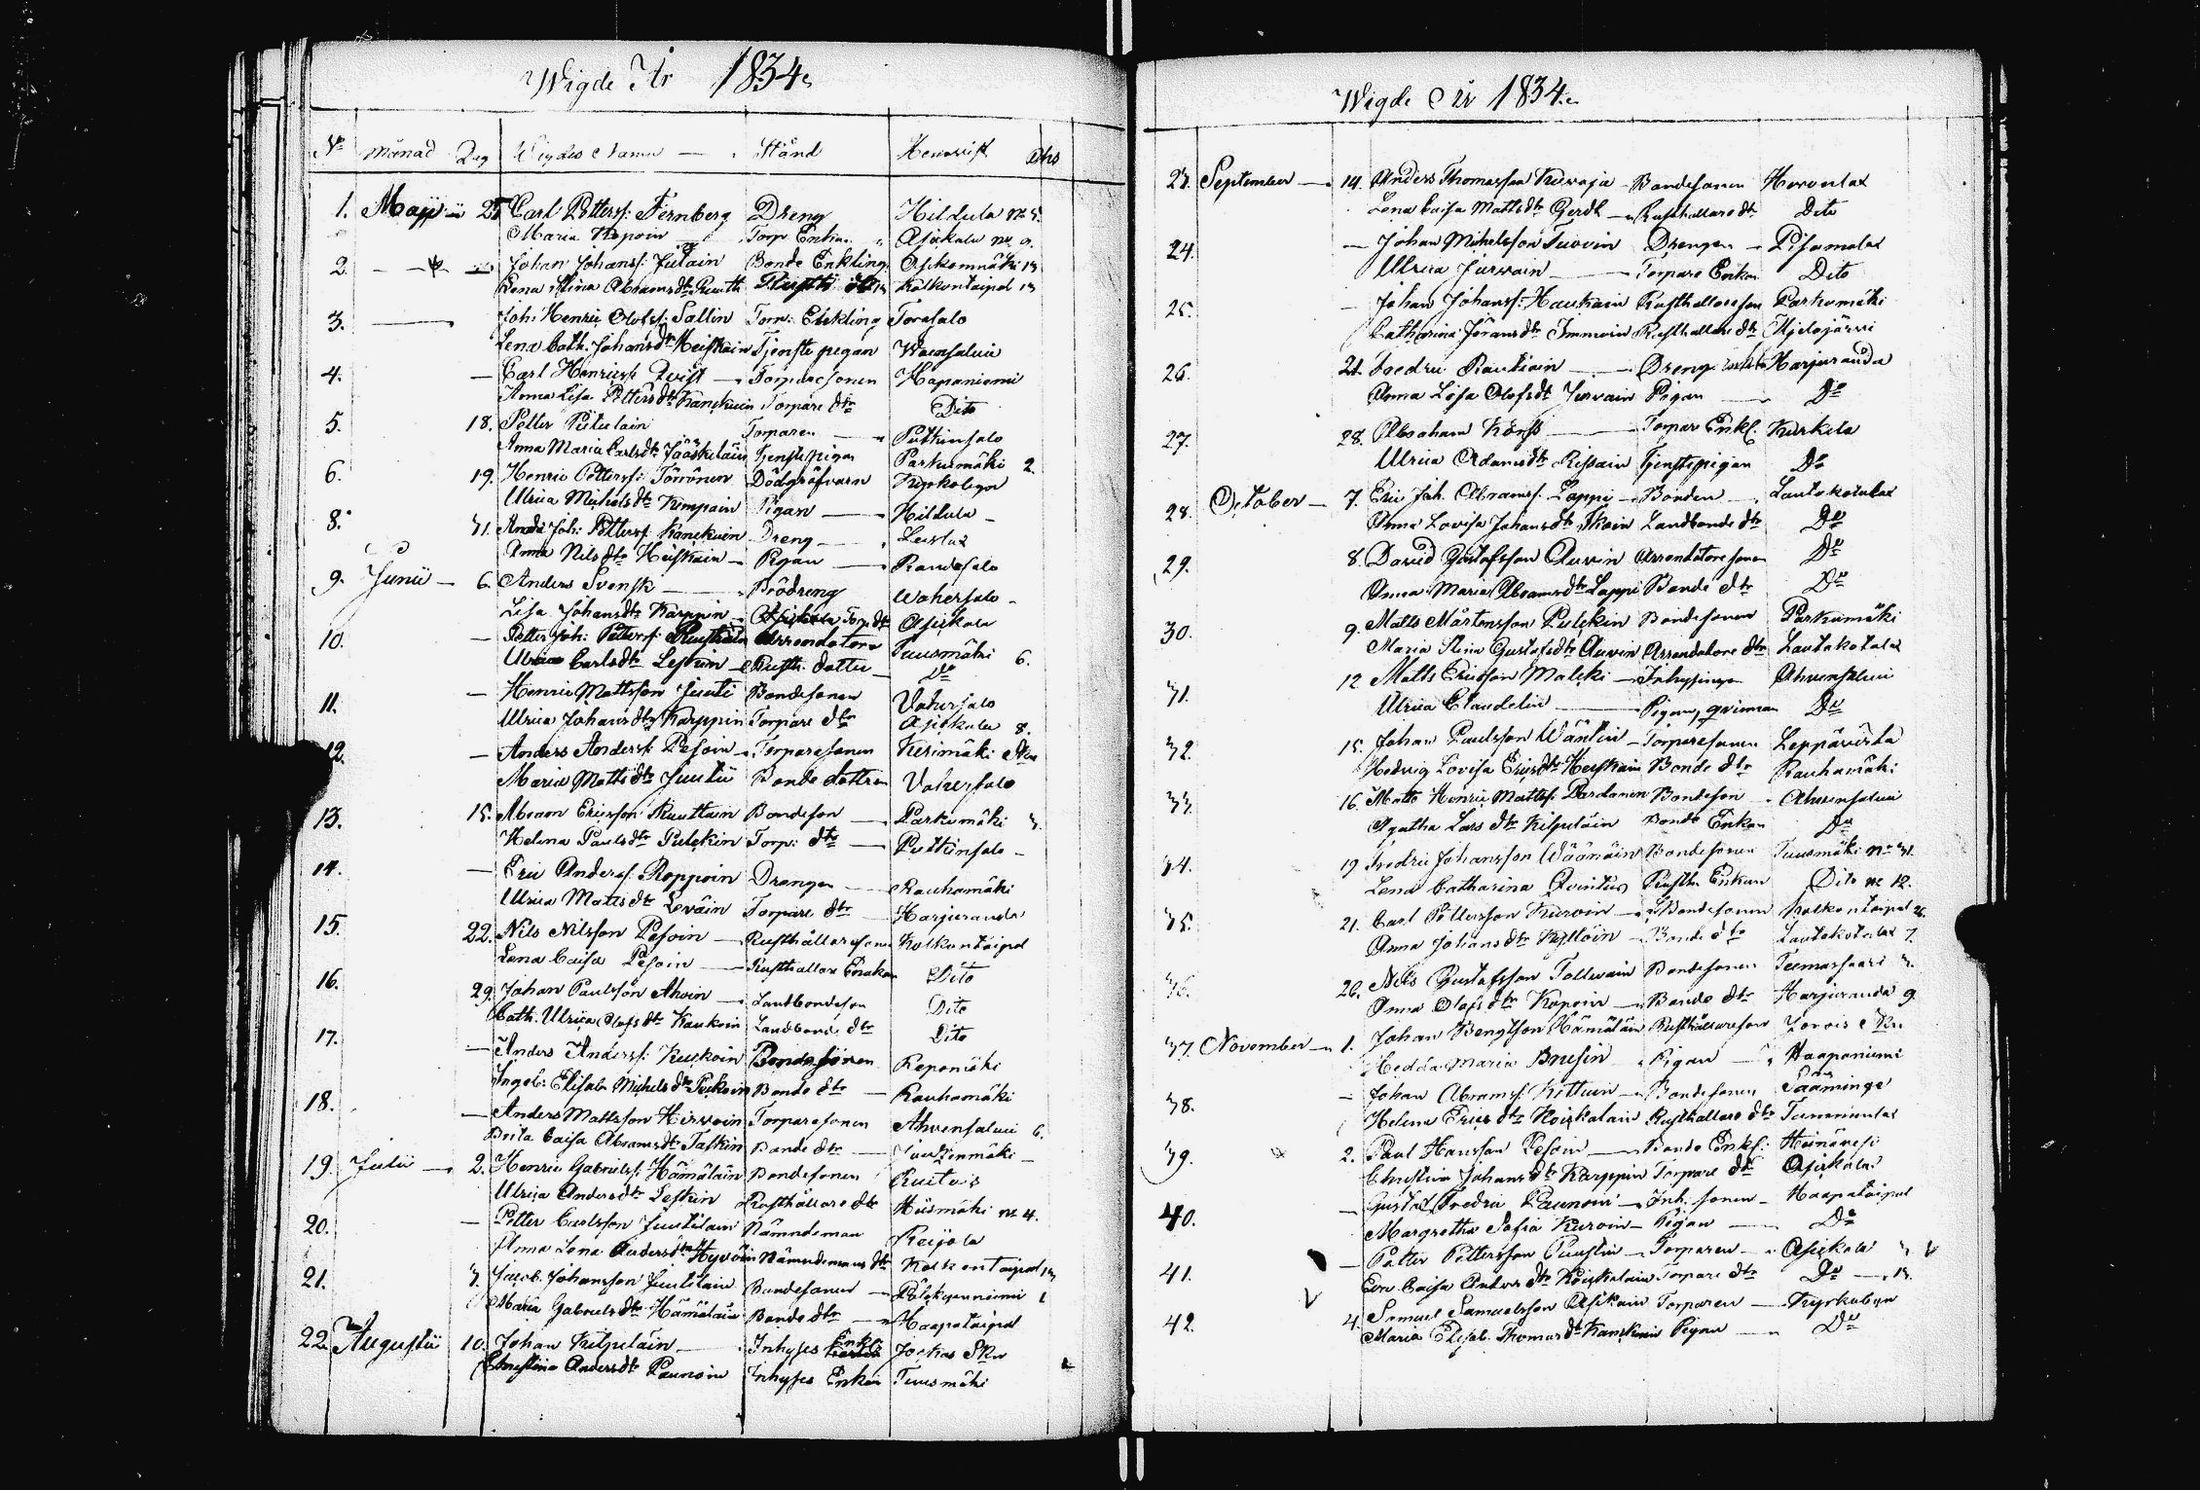 Wigde År 1834.
No Månad Dag Wigdes Namn Stånd Hemvist
1. Maji 25 Carl Petterss: Fernberg Dreng Hildula
Maria Kopoin Torp. Enkan Asikala No 9.
2. Johan Johanss: Julain Bonde Enkling
Lena Stina Abramsdtr Ruuth Kolkontaipal
3. Joh: Henric Olofss: Sallin Torp: Enkling Torasalo
Lena Cath. Johansdtr Heiskain Tjenste pigan
4. Carl Henricss: Qvist Torparesonen Haponiemi
Anna Lisa Pettersdtr Kanckuin Torpare dtr Dito
5. 18. Petter Pitulain Torparen Putkinsalo
Anna Maria Carlsdtr Jääskeläin Tjenstepigan Parkumäki 2.
6. 19. Henric Petterss: Törrönen Dödgräfvaren Kyrkobyn
Ulrica Michelsdtr Kimpain Pigan Hildula
8. 31. And: Joh: Petterss: Kanckuin Dreng
Anna Nilsdtr Heiskain Pigan Randasalo
9. Junii 6. Anders Svensk Wahersalo
Lisa Johansdtr Karppin Torp. dtr Asikala
10. Petter Joh: Petterss: Ruuttuin Arrendatore Tuusmäki 6.
Ulrica Carlsdtr Leskin Rusth. dotter Do
11. Henric Mattsson Juuti Bondesonen Vahersalo
Ulrica Johansdtr Karppin Torpare dtr Asikala 8.
12. Anders Anderss: Pesoin Torparesonen Kerimäki
Maria Mattsdtr Juutii Bonde dottren Vahersalo
13. 15. Abram Ericsson Ruuttuin Bondeson Parkumäki 3.
Helena Paulsdtr Pulckin Torp: dtr Putkinsalo
14. Eric Anderss: Roppoin Drengen Rauhamäki
Ulrica Mattsdtr Leväin Torpare dtr Harjuranda
15. 22. Nils Nilsson Pesoin Rusthållaresonen Kolkontaipal
Lena Caisa Pesoin Rusthållare Enckan Dito
16. 29. Johan Paulsson Ahoin Landbondeson Dito
Cath. Ulrica Olofsdtr Kaukoin Landbonde dtr Dito
17. Anders Anderss: Kuckoin Bondesonen Reponiäki
Ingeb: Elisab: Michelsdtr Puckoin Bonde dtr Rauhamäki
18. Anders Mattsson Hirvoin Torparesonen Ahvensalmi 6.
Brita Caisa Abramsdtr Talkin Bonde dtr
19. Julii 2. Henric Gabrielss: Hämäläin Bondesonen
Ulrica Andersdtr Leskin Rusthållare dtr Hiismäki No 4.
20. Petter Carlsson Juutilain Nämndeman Reijola
Anna Lena Andersdtr Hyvöin Nämndemans dtr Kolkontaipal
21. 3. Jacob Johansson Juutilain Bondesonen 1
Maria Gabrielsdtr Hämäläin Bonde dtr Haapataipal
22. Augustii 10. Johan Kilpeläin Inhyses Enkl: Jockas Skn
Christina Andersdtr Paunoin Inhyses Enkan Tuusmäki
Wigde År 1834.
23. September 14. Anders Thomasson Kurvaja Bondesonen
Lena Caisa Mattsdtr Gerdt Rusthållaredtr Dito
24. Johan Michelsson Tuovin Drengen Pisamalax
Ulrica Jurvain Torpare Enkan Dito
25. Johan Johanss: Haukain Rusthållareson Parkumäki
Catharina Jöransdtr Immoin Rusthållare dtr
26. 21. Fredric Rautiain Dreng Harjuranda
Anna Lisa Olofsdtr Jurvain Pigan Do
27. 28. Abraham Torpar Enkl. Kurkela
Ulrica Adamsdtr Ressain Tjenstepigan Do
28. October 7. Eric Joh. Abramss: Lappi Bonden Lautakotalax
Anna Lovisa Johansdtr Ikain Landbonde dtr Do
29. 8. David Gustafsson Auvin Arrendatoresonen Do
Anna Maria Abramsdtr Lappi Bonde dtr Do
30. 9. Matts Mårtensson Pulckin Bondesonen Parkumäki
Maria Stina Gustafsdtr Auvin Arrendatore dtr Lautakotalax
31. 12 Matts Ericsson Malcki Ahvensalmi
Ulrica Claudelin Pigan, qvinnan Do
32. 15. Johan Paulsson Wäntin Torparesonen Leppävirta
Hedvig Lovisa Ericsdtr Heiskain Bonde dtr Rauhamäki
33. 16. Matts Henric Mattss: Pardanen Bondeson Ahvensalmi
Agatha Lars dtr Kilpeläin Bonde Enkan Do
34. 19 Fredric Johansson Wäänäin Bondesonen Tuusmäki No 31.
Lena Catharina Qvintus Rusth. Enkan Dito No 12.
35. 21. Carl Pettersson Kurvoin Bondesonen Kolkontaipal
Anna Johansdtr Kyllöin Bonde dtr Lautakotalax 7.
36. 26. Nils Gustafsson Tollvain Bondesonen Teemassaari
Anna Olofsdtr Kopoin Bonde dtr Harjuranda 9.
37. November 1. Johan Bengtson Hämäläin Rusthållareson Jorois
Hedda Maria Brusin Pigan Haapaniemi
38. Johan Abramss: Kettuin Bondesonen Sääminge
Helena Ericsdtr Koickalain Rusthållare dtr
39. 2. Paul Hansson Pesoin Bonde Enkl: Heinävesi
Christina Johansdtr Karppin Torpare dtr Asikala
40. Gustaf Fredric Paunoin Inh. sonen Haapataipal
Margretha Sofia Kurvoin Pigan Do
41. Petter Pettersson Puustin Torparen Asikala
Eva Caisa Anders dtr Koickalain Torpare dtr Do
42. 4. Samuel Samuelsson Asikain Torparen Kyrkobyn
Maria Elisab. Thomasdtr Kanckuin Pigan Do